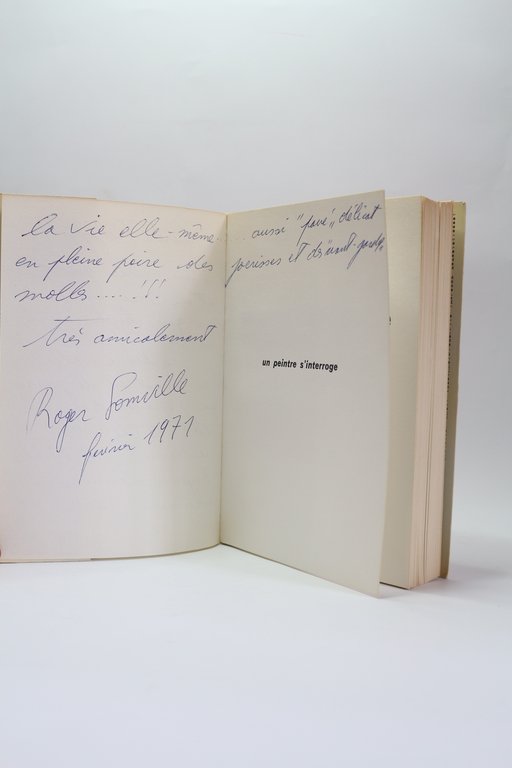 la vie elle-même
en pleine poire des
molles.... !!!
très amicalement
Roger Somville
février 1971
.... aussi "pavé", délicat
et
un peintre s'interroge